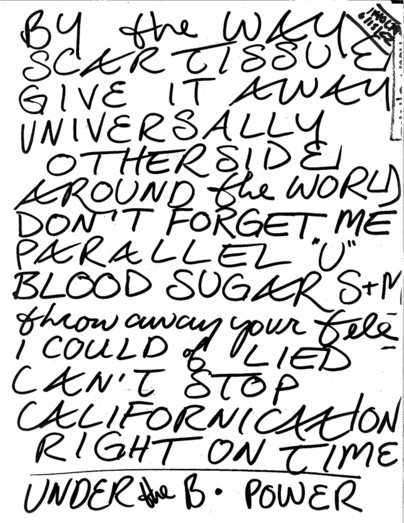 BY the WAY
SCAR TISSUE
GIVE IT AWAY
UNIVERSALLY
OTHERSIDE
AROUND the WORLD
DON'T FORGET ME
PARALLEL "U"
BLOOD SUGAR S+M
throw away your tele
I COULD of LIED
CAN'T STOP
CALIFORNICATION
RIGHT ON TIME
UNDER the B. POWER